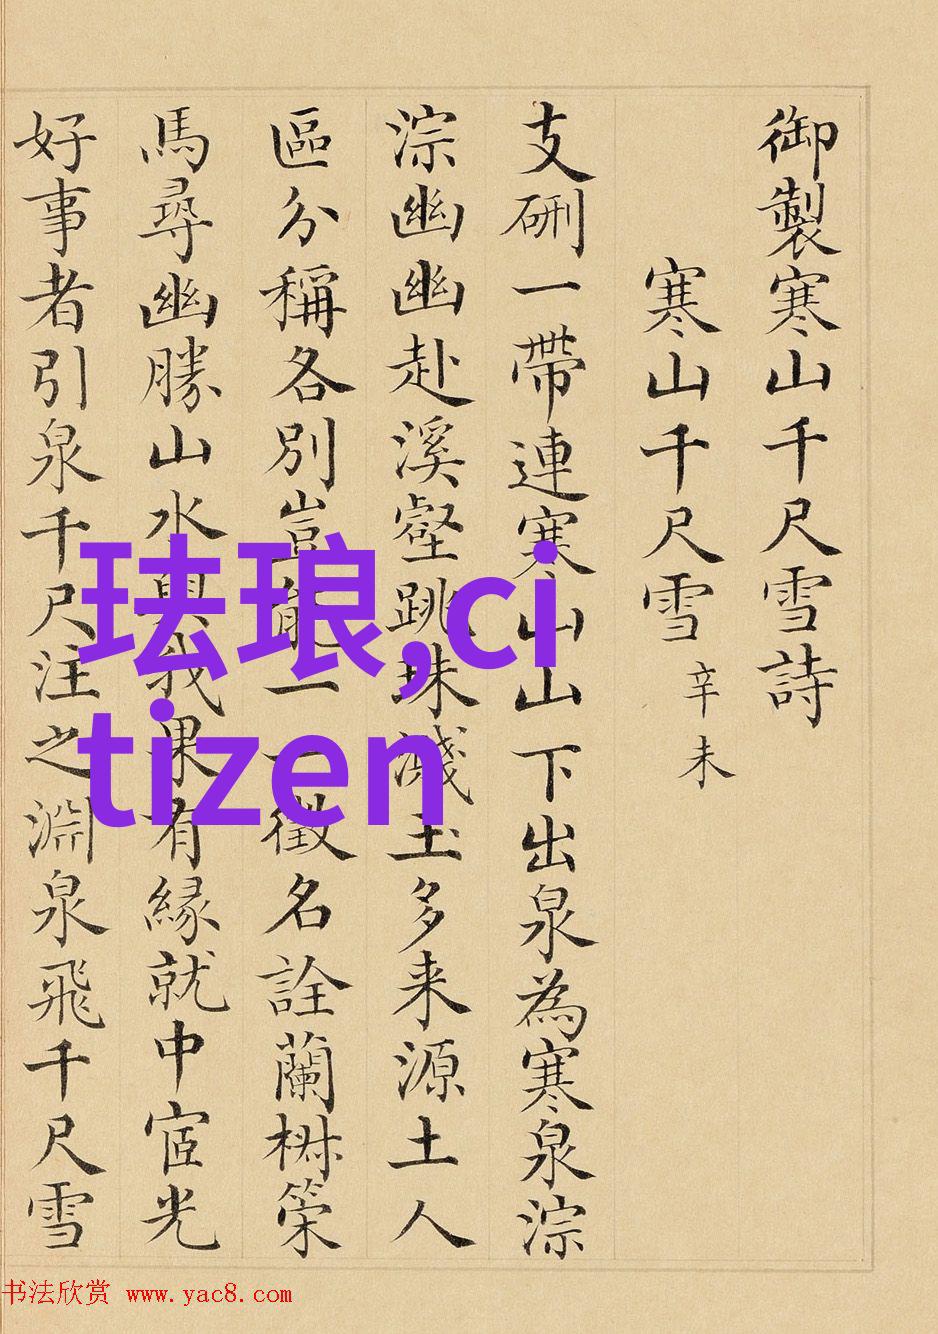 御製寒山千尺雪詩
寒山千尺雪 辛未
支硎一帶連寒山山下出泉為寒泉淙
淙幽幽赴溪壑跳珠濺玉多来源土人
區分稱各別豈能一一徵名詮蘭椒策
馬尋幽勝山水與我果有緣就中宧光
好事者引泉千尺注之淵泉飛千尺雪
珐琅,ci
tizen
书法欣赏 www.yac8.com